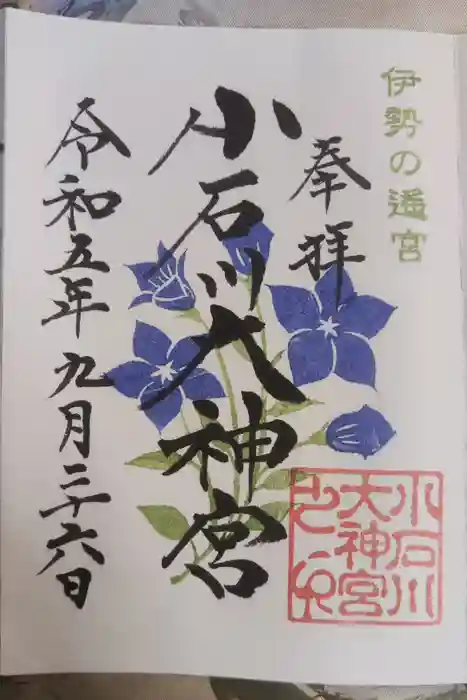 伊勢の遙宮
奉拝
小石川大神宮
令和五年九月二十六日
小石川
大神宮
之印